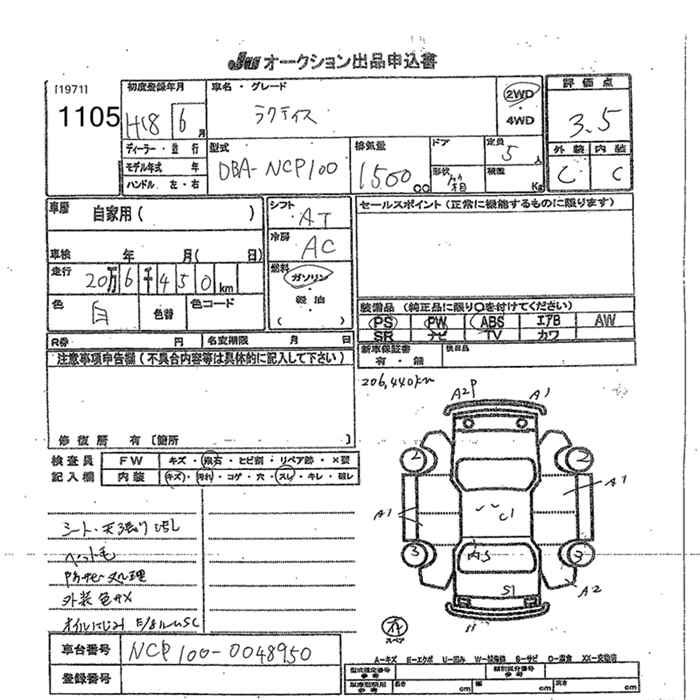 JU オークション出品申込書
[1971]
1105
初度登録年月
H18 6 月
車名・グレード
ラクティス
2WD
4WD
評価点
3.5
外装 内装
C C
ディーラー・並行
モデル年式 年
ハンドル 左・右
型式
DBA-NCP100
排気量
1500 cc
ドア
形状
定員
5 人
積載
Kg
車歴
自家用( )
車検 年 月( 日)
走行
20万6千450 km
色
白
色替
色コード
シフト
AT
冷房
AC
燃料
ガソリン
軽油
( )
セールスポイント(正常に機能するものに限ります)
装備品 (純正品に限り○を付けてください)
PS PW ABS エアB AW
SR ナビ TV カワ
R券 円 名変期限 月 日
新車保証書
有・無
後日品
注意事項申告欄(不具合内容等は具体的に記入して下さい)
修復歴 有[箇所 ]
206,440km
検査員
記入欄
FW キズ・飛石・ヒビ割・リペア跡・×要
内装 キズ・汚れ・コゲ・穴・スレ・キレ・破レ
A2P A1
2 2
A1 A1
C1
3 3
内S
S1 A2
スペア
シート・天張り汚し
ペット毛
外装色サメ
車台番号
NCP100-0048950
登録番号
A-キズ E-エクボ U-凹み W-補修跡 S-サビ C-腐食 XX-交換済
型式指定番号
参考
類別区分番号
参考
長さ cm 幅 cm 高さ cm